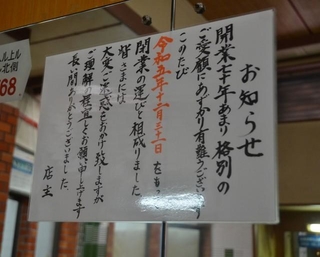 お知らせ
開業七十年あまり格別の
ご愛顧にあずかり有難うございます
このたび
令和五年十二月三十一日を
閉業の運びと相成りました
皆さまには
大変ご迷惑をおかけ致しますが
ご理解の程宜しくお願い申し上げます
長い間ありがとうございました。
店主
ル上ル
北側
68